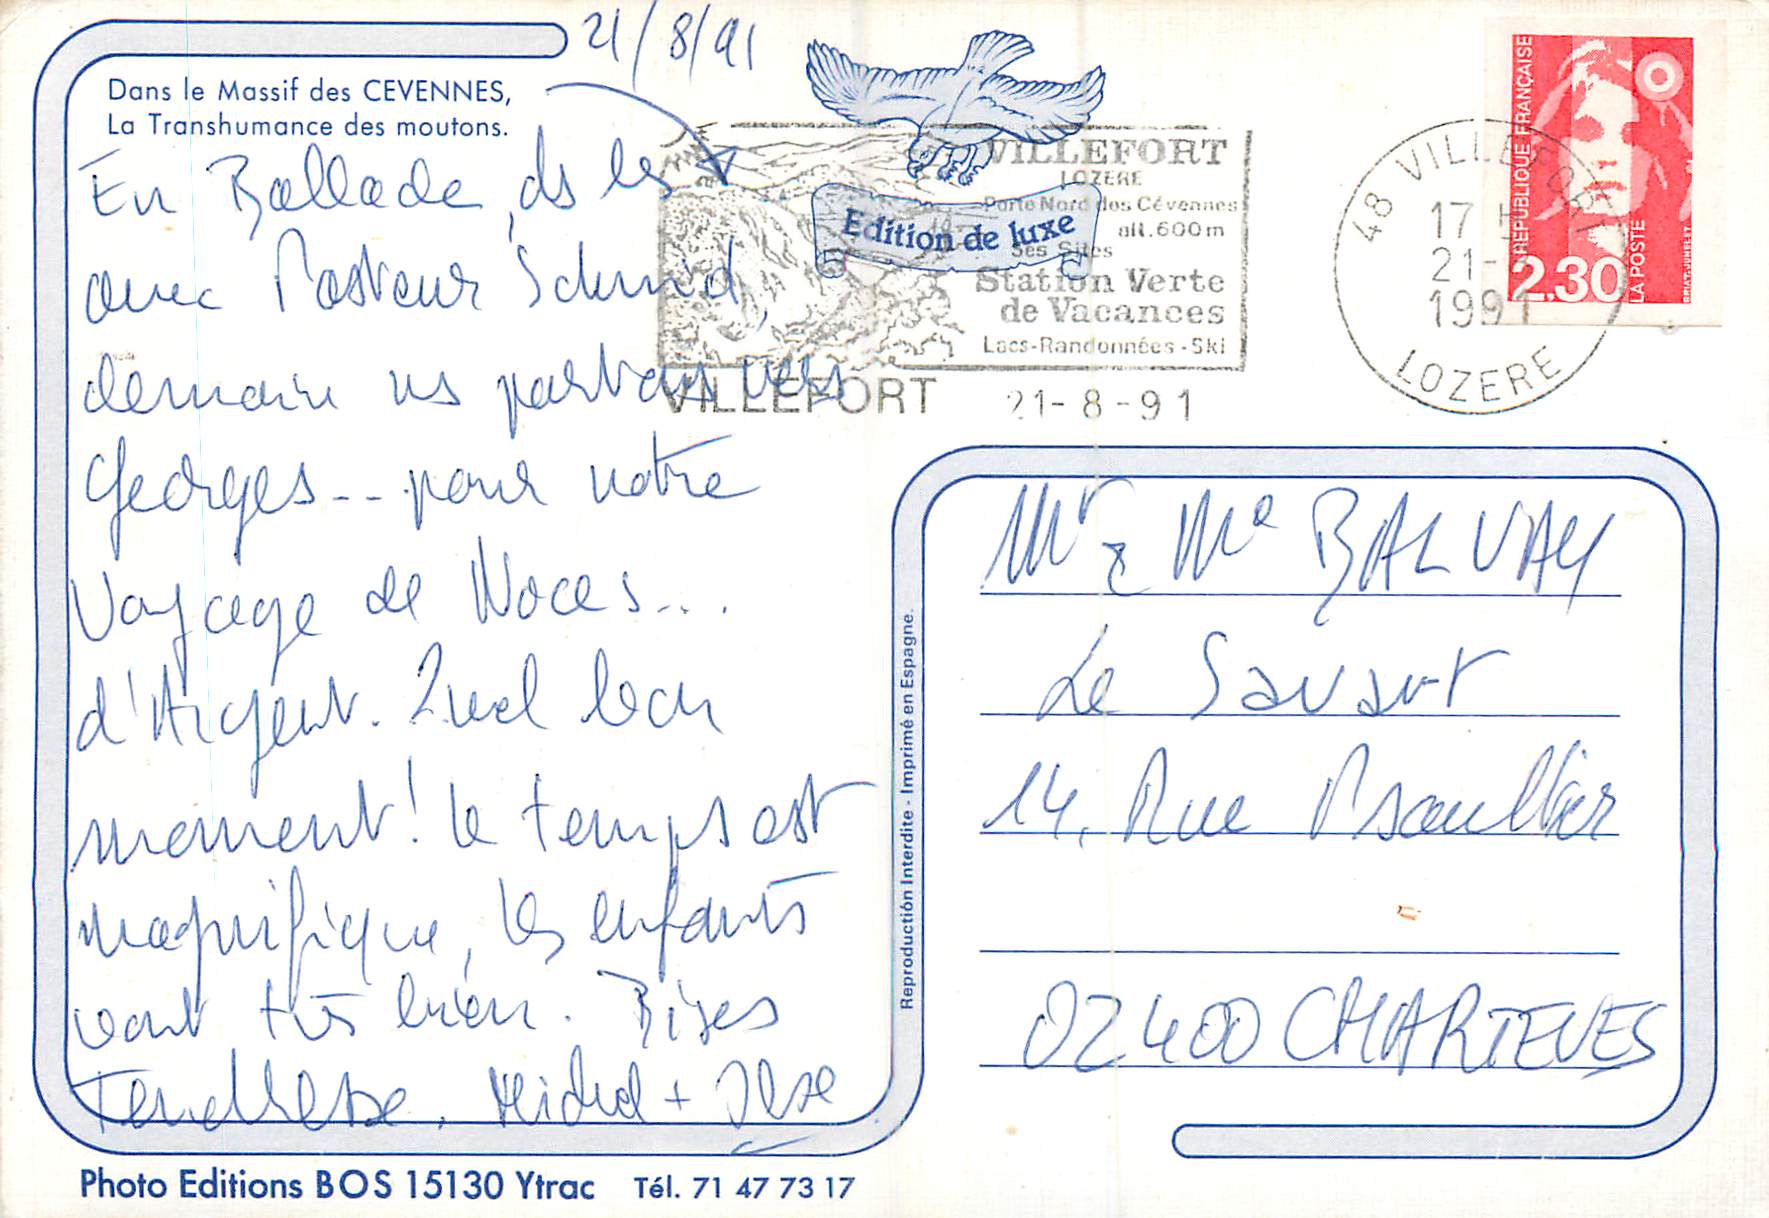 21/8/91
Dans le Massif des CEVENNES,
La Transhumance des moutons.
En Ballade ds les
avec Pasteur Schmid,
demain ns partons vers
Georges... pour notre
Voyage de Noces...
d'Argent. Quel bon
moment! le temps est
magnifique, les enfants
vont très bien. Bises
Tendresse. Michel + Ilse
Photo Editions BOS 15130 Ytrac Tél. 71 47 73 17
Edition de luxe
VILLEFORT
LOZERE
Porte Nord des Cévennes
alt. 600m
Ses Sites
Station Verte
de Vacances
Lacs-Randonnées-Ski
VILLEFORT 21-8-91
48 VILLEFORT
17 H
21-
1991
LOZERE
REPUBLIQUE FRANÇAISE
2,30
LA POSTE
Reproduction Interdite - Imprimé en Espagne.
Mr & Me BALVAY
Le Savart
14, Rue
02400 CHARTEVES